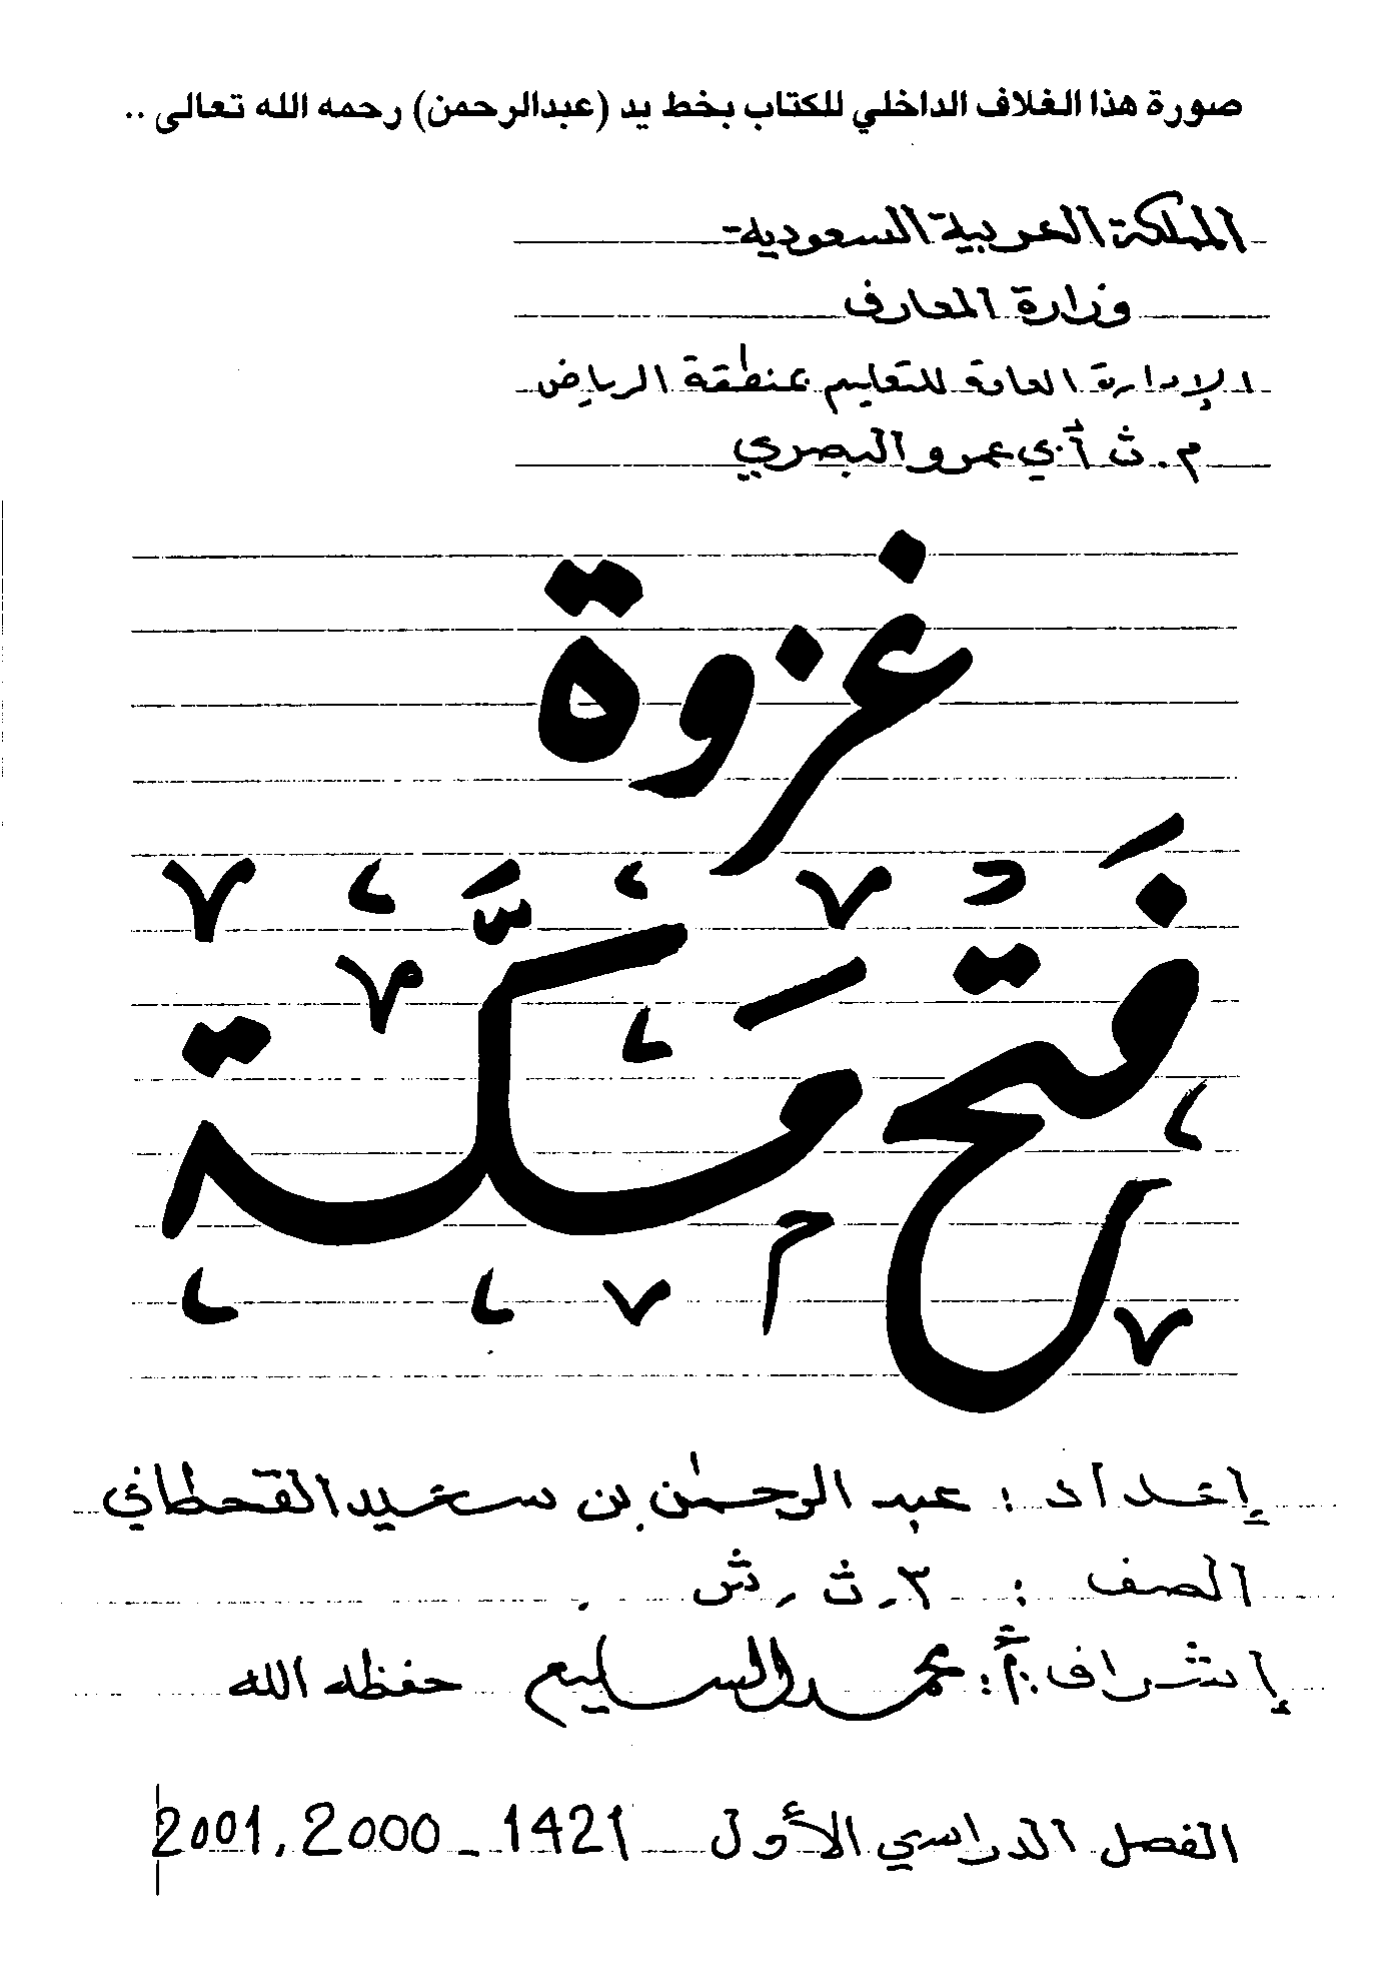 صورة هذا الغلاف الداخلي للكتاب بخط يد (عبدالرحمن) رحمه الله تعالى ..
المملكة العربية السعودية
وزارة المعارف
الإدارة العامة للتعليم بمنطقة الرياض
م. ث أبي عمرو البصري
غزوة
فتح مكة
إعداد : عبد الرحمٰن بن سعيد القحطاني
الصف : ٣ ، ث ، ش .
إشراف أ : محمد السليم حفظه الله
الفصل الدراسي الأول 1421 _ 2000 , 2001